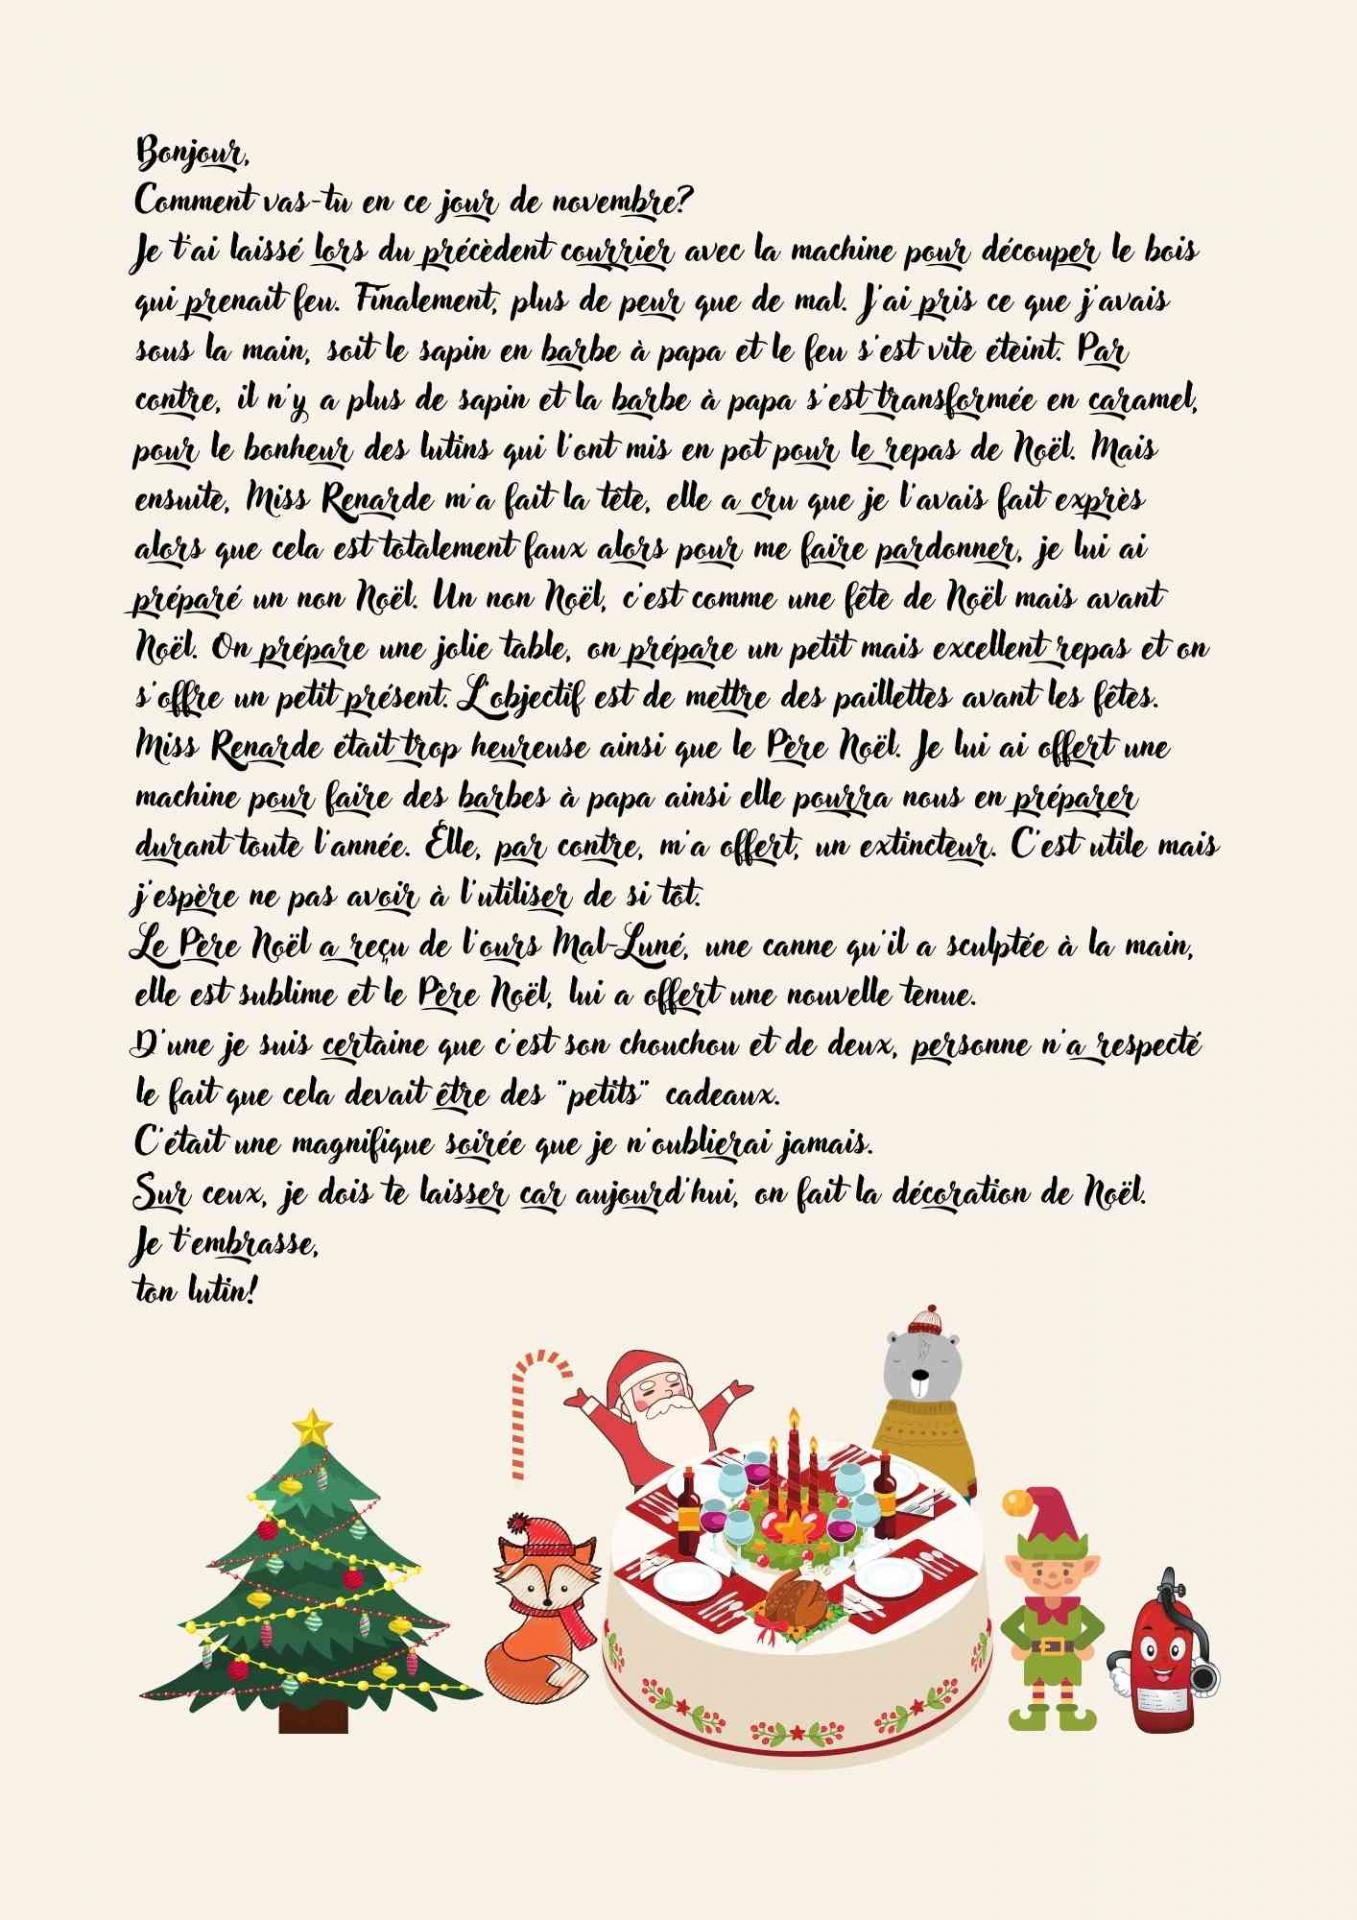 Bonjour,
Comment vas-tu en ce jour de novembre?
Je t'ai laissé lors du précèdent courrier avec la machine pour découper le bois
qui prenait feu. Finalement, plus de peur que de mal. J'ai pris ce que j'avais
sous la main, soit le sapin en barbe à papa et le feu s'est vite éteint. Par
contre, il n'y a plus de sapin et la barbe à papa s'est transformée en caramel,
pour le bonheur des lutins qui l'ont mis en pot pour le repas de Noël. Mais
ensuite, Miss Renarde m'a fait la tête, elle a cru que je l'avais fait exprès
alors que cela est totalement faux alors pour me faire pardonner, je lui ai
préparé un non Noël. Un non Noël, c'est comme une fête de Noël mais avant
Noël. On prépare une jolie table, on prépare un petit mais excellent repas et on
s'offre un petit présent. L'objectif est de mettre des paillettes avant les fêtes.
Miss Renarde était trop heureuse ainsi que le Père Noël. Je lui ai offert une
machine pour faire des barbes à papa ainsi elle pourra nous en préparer
durant toute l'année. Elle, par contre, m'a offert, un extincteur. C'est utile mais
j'espère ne pas avoir à l'utiliser de si tôt.
Le Père Noël a reçu de l'ours Mal-Luné, une canne qu'il a sculptée à la main,
elle est sublime et le Père Noël, lui a offert une nouvelle tenue.
D'une je suis certaine que c'est son chouchou et de deux, personne n'a respecté
le fait que cela devait être des "petits" cadeaux.
C'était une magnifique soirée que je n'oublierai jamais.
Sur ceux, je dois te laisser car aujourd'hui, on fait la décoration de Noël.
Je t'embrasse,
ton lutin!